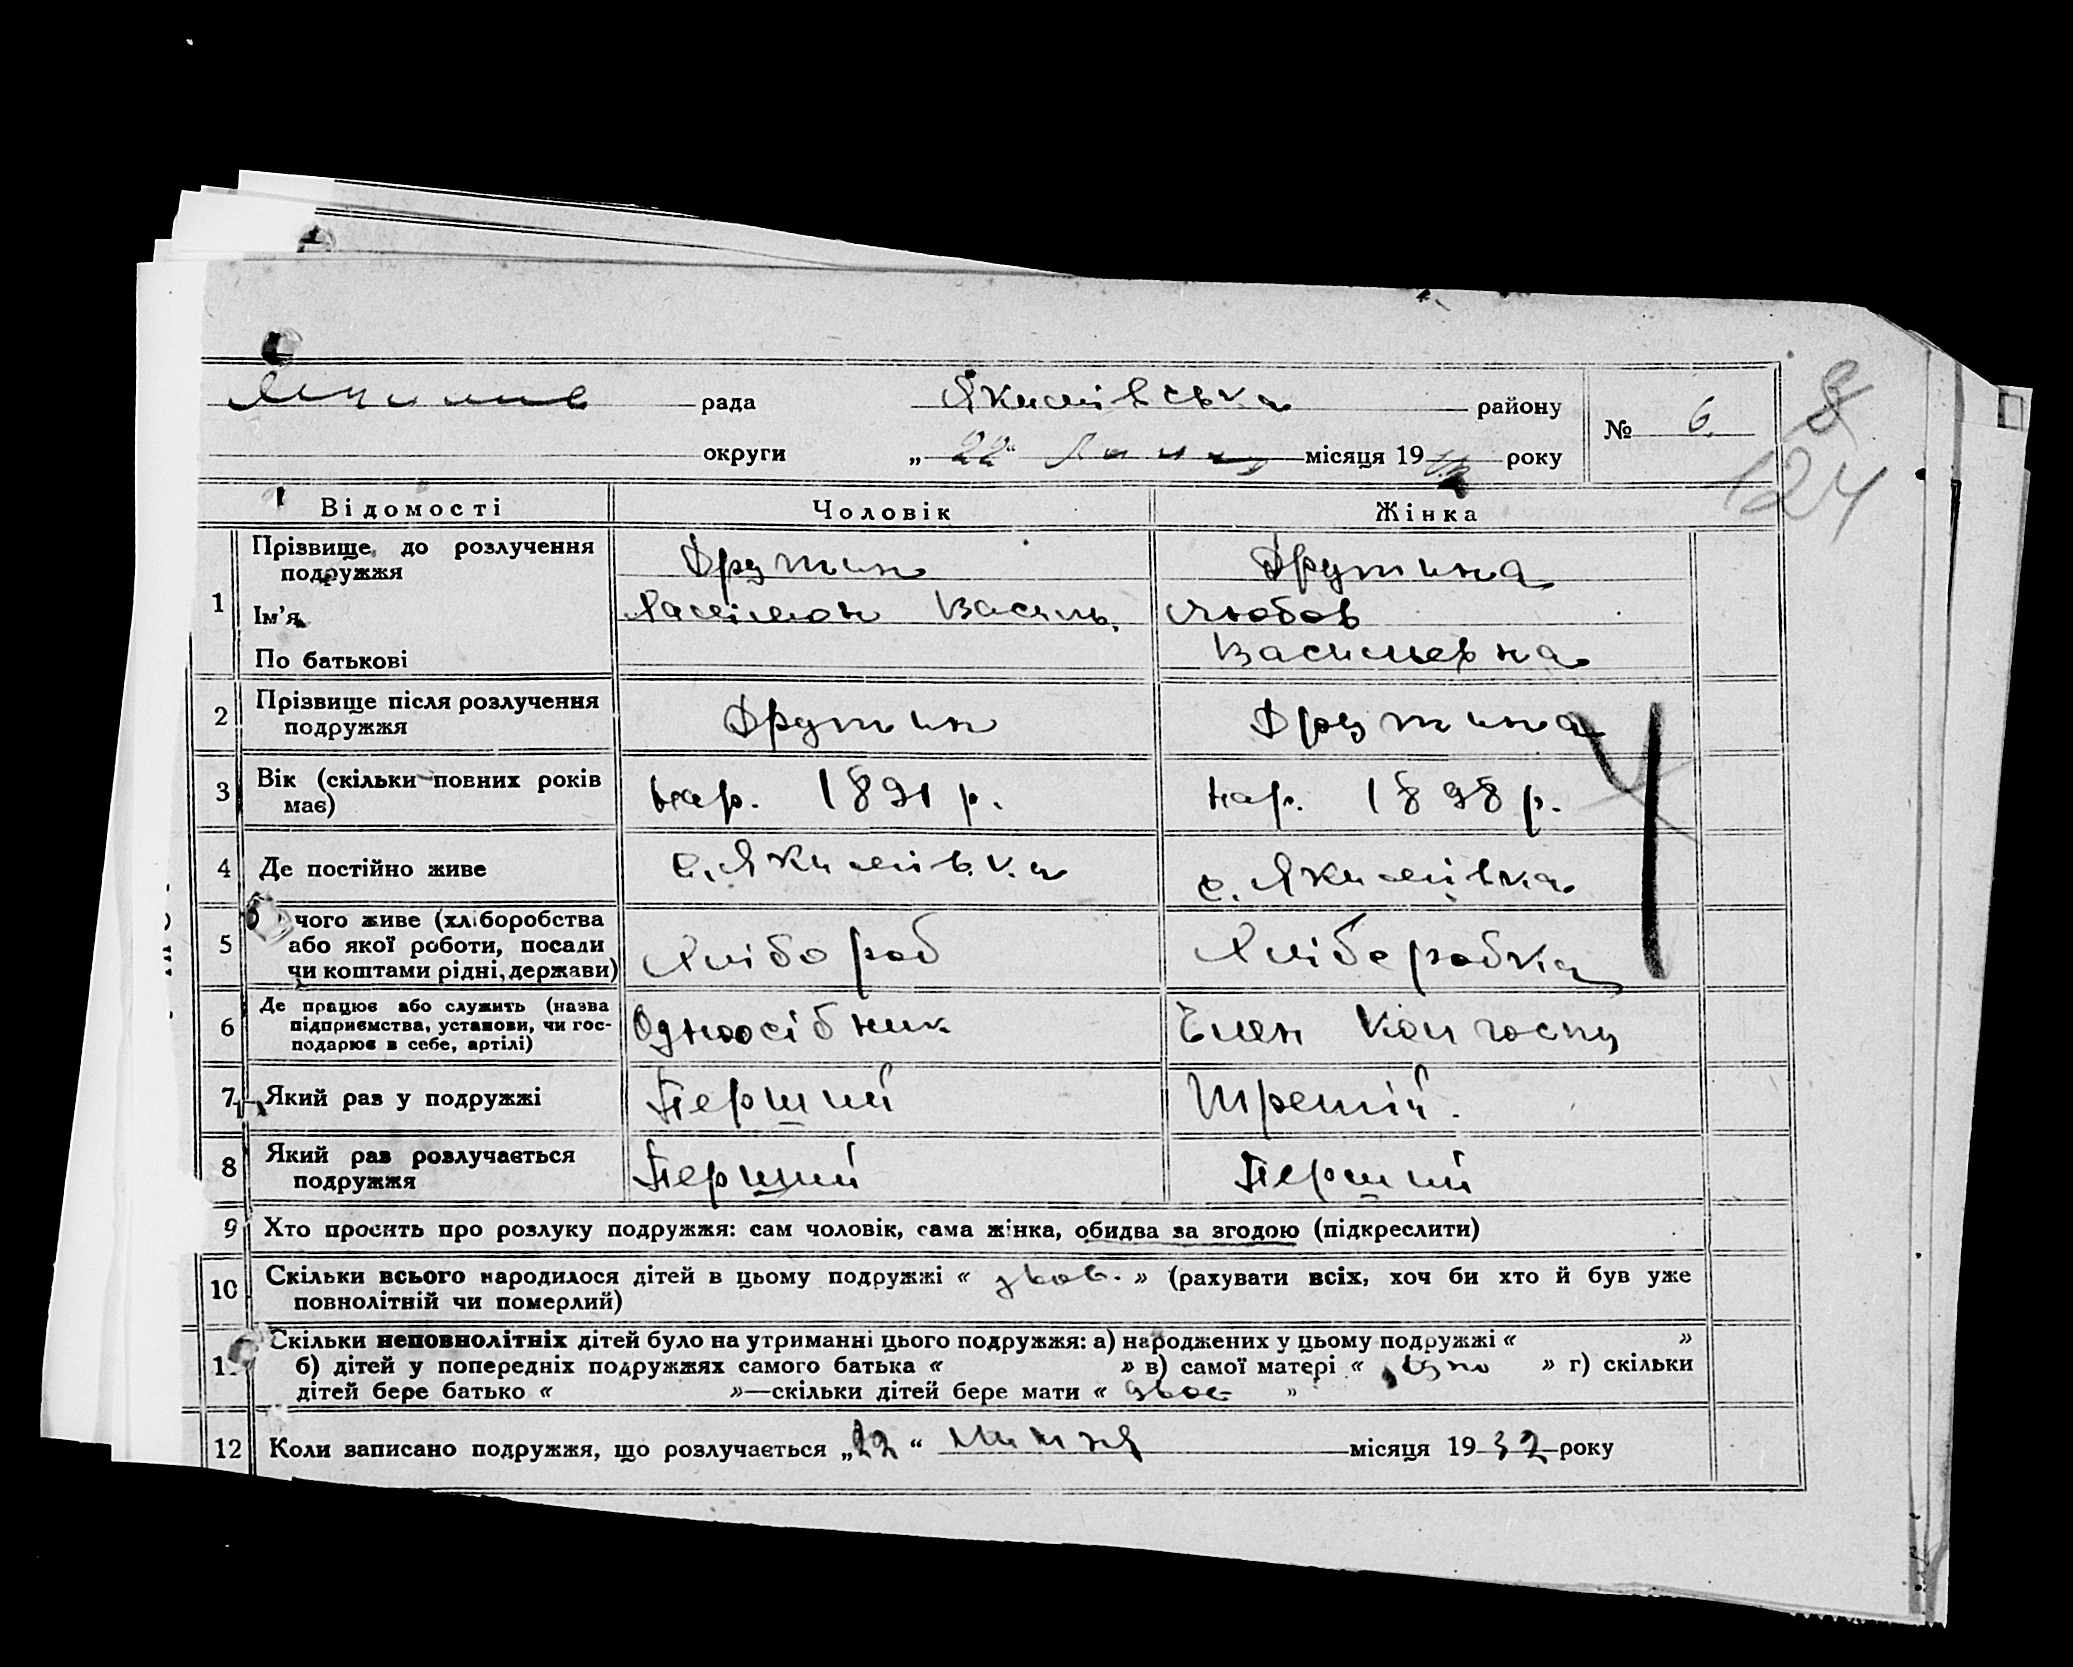 рада Якимівська району № 6.
округи „ 22 “ місяця 19 року
8
124
Відомості Чоловік Жінка
1 Прізвище до розлучення подружжя Друтин Друтина
Ім'я Василь. Любов
По батькові Васильевна
2 Прізвище після розлучення подружжя Друтин Друтина
3 Вік (скільки повних років має) нар. 1891 р. нар. 1898 р.
4 Де постійно живе с. Якимівка с. Якимівка
5 чого живе (хліборобства або якої роботи, посади чи коштами рідні, держави) Хлібороб Хлiборобка
6 Де працює або служить (назва підприємства, установи, чи господарює в себе, артілі) Одноосібник Член колгоспу
7 Який раз у подружжі Перший Третій.
8 Який раз розлучається подружжя Перший Перший
9 Хто просить про розлуку подружжя: сам чоловік, сама жінка, обидва за згодою (підкреслити)
10 Скільки всього народилося дітей в цьому подружжі « двоє. » (рахувати всіх, хоч би хто й був уже
повнолітній чи померлий)
Скільки неповнолітніх дітей було на утриманні цього подружжя: а) народжених у цьому подружжі « »
б) дітей у попередніх подружжях самого батька « » в) самої матері « » г) скільки
дітей бере батько « »—скільки дітей бере мати « двоє »
12 Коли записано подружжя, що розлучається „22“ липня місяця 1932 року